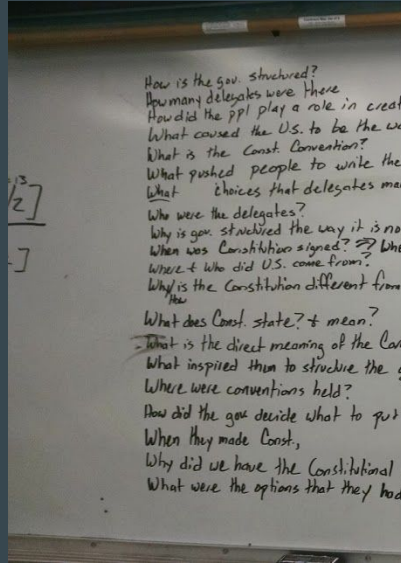 How is the gov. structured?
How many delegates were there
How did the ppl play a role in creat
What caused the U.S. to be the wa
What is the Const. Convention?
What pushed people to write the
What choices that delegates ma
Who were the delegates?
Why is gov. structured the way it is no
When was Constitution signed? Whe
Where & Who did U.S. come from?
Why/is the Constitution different from
How
What does Const. state? & mean?
What is the direct meaning of the Con
What inspired them to structure the g
Where were conventions held?
How did the gov decide what to put
When they made Const.,
Why did we have the Constitutional
What were the options that they had
13
/2]
]